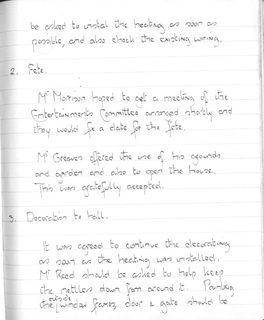 be asked to instal the heating as soon as
possible, and also check the existing wiring.
2. Fete.
Mr Morison hoped to get a meeting of the
Entertainments Committee arranged shortly and
they would fix a date for the fete.
Mr Greaves offered the use of his grounds
and garden and also to open the house.
This was gratefully accepted.
3. Decoration to hall.
It was agreed to continue the decorating
as soon as the heating was installed.
Mr Read should be asked to help keep
the nettles down from around it. Painting
the outside window frames, door & gate should be